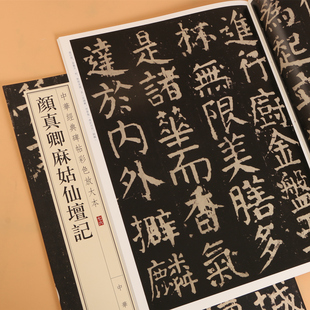 為起立
進行廚金盤
杯無限美膳多
是諸華而香氣
達於內外擗麟
中華經典碑帖彩色放大本
顏真卿麻姑仙壇記
中華
城